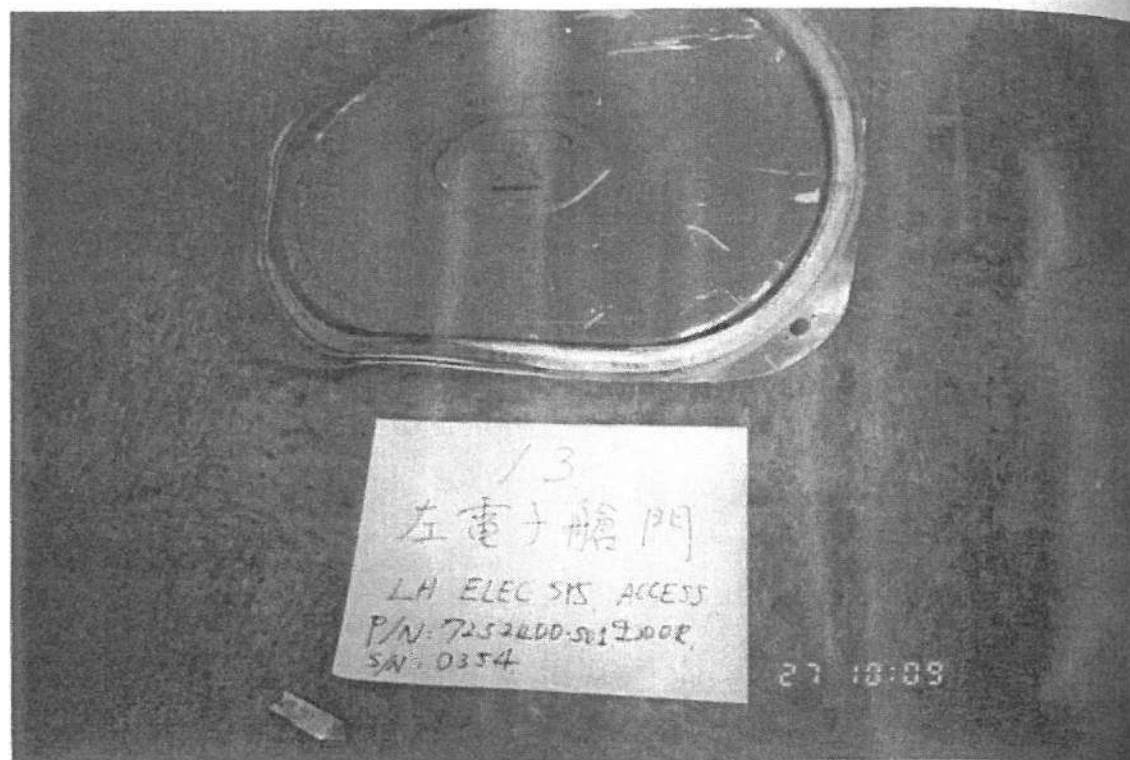 13
左電子艙門
LH ELEC SYS. ACCESS
P/N: 7252400-501 DOOR
S/N: 0354
27 10:09